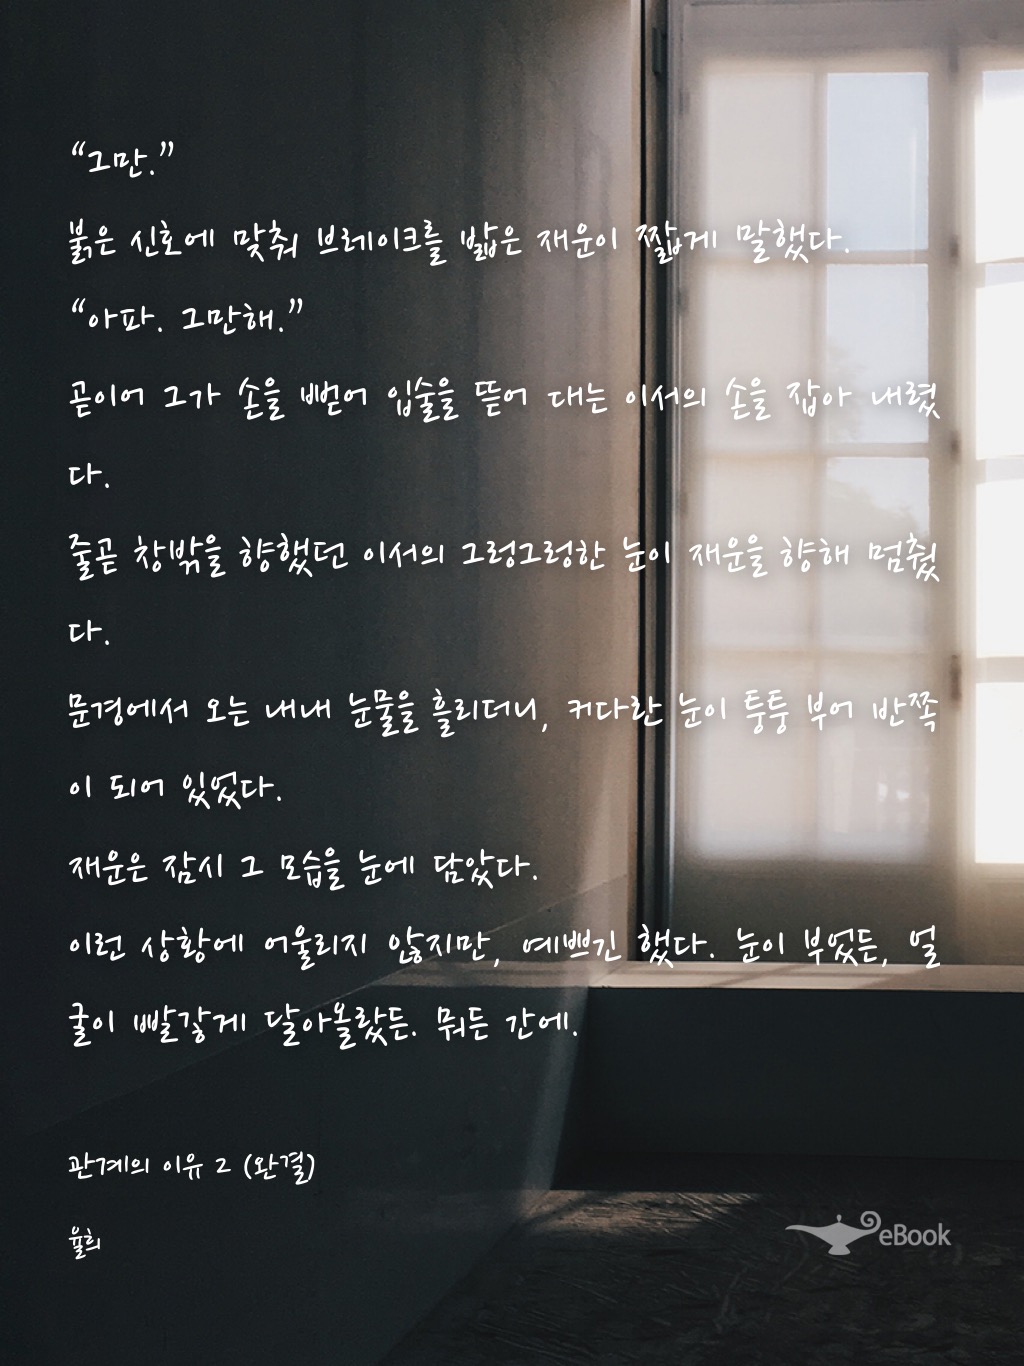 “그만.”
붉은 신호에 맞춰 브레이크를 밟은 재운이 짧게 말했다.
“아파. 그만해.”
곧이어 그가 손을 뻗어 입술을 뜯어 대는 이서의 손을 잡아 내렸
다.
줄곧 창밖을 향했던 이서의 그렁그렁한 눈이 재운을 향해 멈췄
다.
문경에서 오는 내내 눈물을 흘리더니, 커다란 눈이 퉁퉁 부어 반쪽
이 되어 있었다.
재운은 잠시 그 모습을 눈에 담았다.
이런 상황에 어울리지 않지만, 예쁘긴 했다. 눈이 부었든, 얼
굴이 빨갛게 달아올랐든. 뭐든 간에.
관계의 이유 2 (완결)
율희
eBook